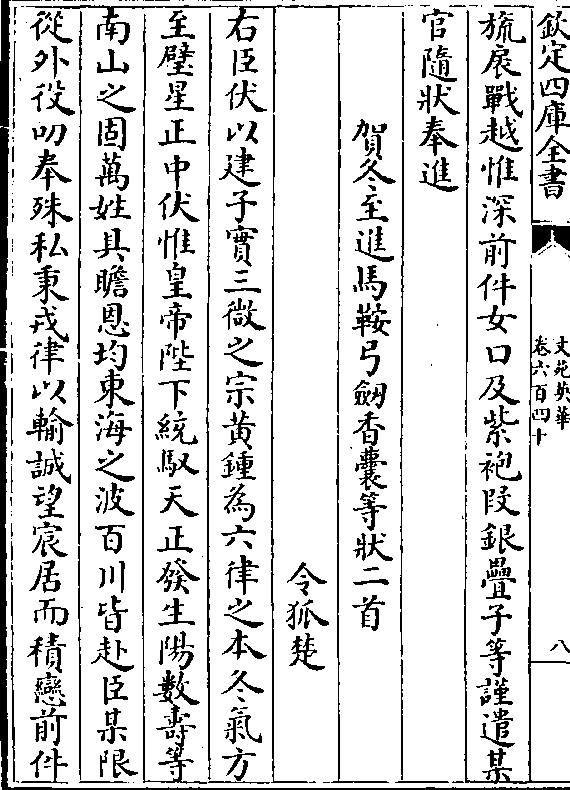 欽定四庫全書
文苑英華
卷六百四十
八
旒扆戰越惟深前件女口及紫袍段銀疊子等謹遣某
官隨狀奉進
賀冬至進馬鞍弓劒香囊等狀二首
令狐楚
右臣伏以建子實三微之宗黃鍾為六律之本冬氣方
至璧星正中伏惟皇帝陛下統馭天正發生陽數壽等
南山之固萬姓具瞻恩均東海之波百川皆赴臣某限
從外役叨奉殊私秉戎律以輸誠望宸居而積戀前件